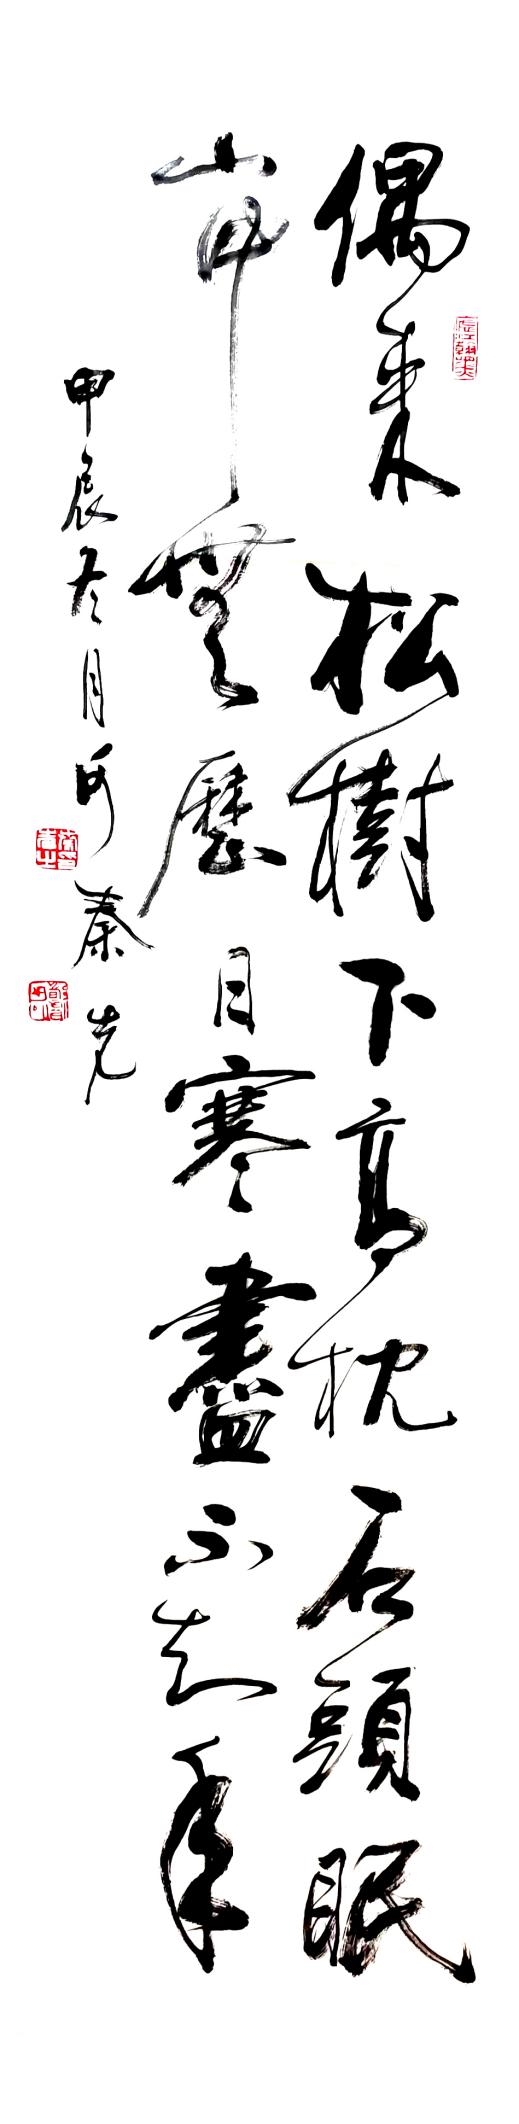 偶来松樹下高枕石頭眠
山中無歷日寒盡不知年
甲辰冬月於秦